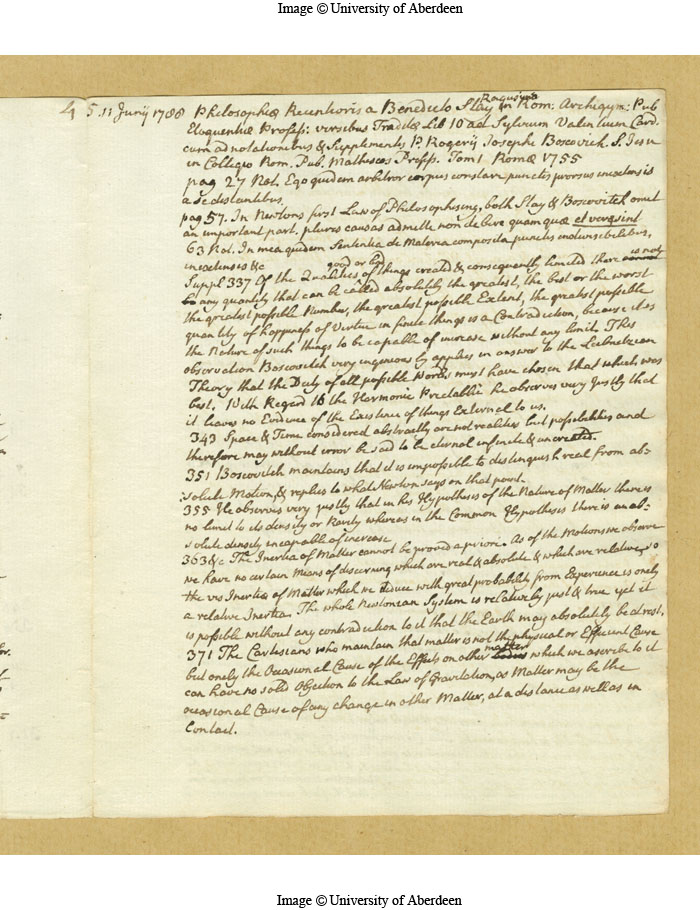 Image © University of Aberdeen
4 5. 11 Junij 1788 Philosophiæ Recentioris a Benedicto Stay Ragusino in Rom: Archigym: Pub
Eloquentiæ Profess: versibus Traditæ Lib 10 ad Sylvium Valentium Card.
cum adnotationibus & Supplementis P. Rogerij Josephi Boscovich. S. Jesu
in Collegio Rom. Pub. Matheseos Profess. Tom 1 Romæ 1755
pag 27 Not. Ego quidem arbitror corpus constare punctis prorsus inextensis
a se distantibus.
pag 57. In Newtons first Law of Philosophising, both Stay & Boscovich omit
an important part. plures causas admitti non debere quam quæ et veræ sint
63 Not. In mea quidem Sententia de Materia composita punctis indivisibilibus,
inextensis &c
Suppl 337 Of the Qualities good or bad of things created & consequently limited there is not
any quantity that can be called absolutely the greatest, the best or the worst
the greatest possible Number, the greatest possible Extent, the greatest possible
quantity of happiness of Virtue in finite things is a Contradiction, because it is
the Nature of such things to be capable of increase without any limit. This
observation Boscovich very ingeniously applies in answer to the Leibnitzean
Theory that the Deity of all possible Worlds must have chosen that which was
best. With Regard to the Harmonie Preetablie he observes very justly that
it leaves no Evidence of the Existence of things External to us.
343 Space & Time considered abstractly are not realities but possibilities and
therefore may without error be said to be eternal infinite & uncreated.
351 Boscovitch maintains that it is impossible to distinguish real from ab=
solute Motion, & replies to what Newton says on that point.
355 He observes very justly that in his Hypothesis of the Nature of Matter there is
no limit to its density or Rarity whereas in the Common Hypothesis there is an ab=
solute density incapable of increase
363 &c The Inertia of Matter cannot be proved a priori. As of the Motions we observe
we have no certain Means of discerning which are real & absolute & which are relative, so
the vis Inertiæ of Matter which we deduce with great probability from Experience is onely
a relative Inertia. The whole Newtonian System is relatively just & true yet it
is possible without any contradiction to it that the Earth may absolutely be at rest.
371 The Cartesians who maintain that matter is not the physical or Efficient Cause
but onely the Occasional Cause of the Effects on other matter which we ascribe to it
can have no solid Objection to the Law of Gravitation, as Matter may be the
occasional Cause of any change in other Matter, at a distance as well as in
Contact.
Image © University of Aberdeen